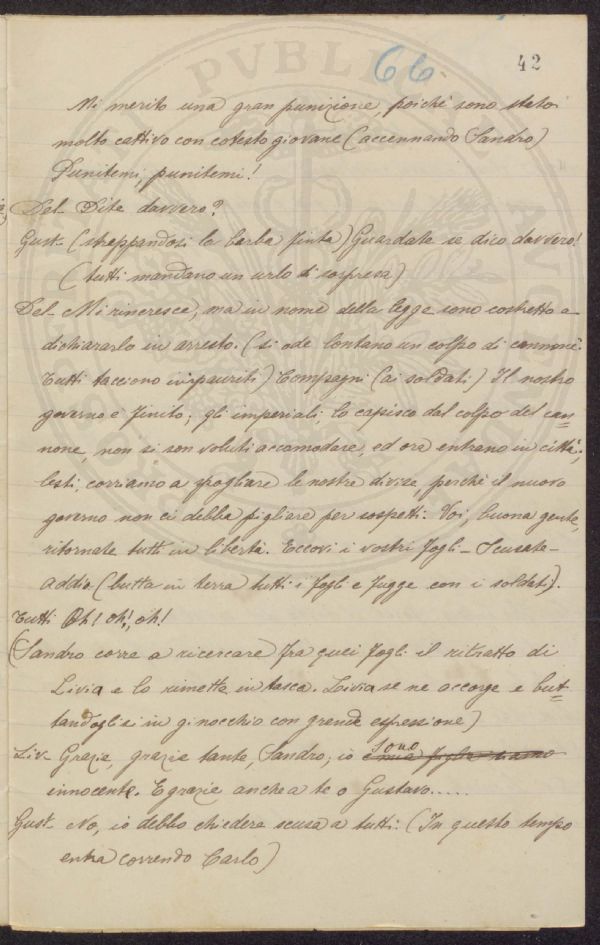 66
42
Mi merito una gran punizione, poichè sono stato
molto cattivo con cotesto giovane (accennando Sandro)
Punitemi, punitemi!
Del- Dite davvero?
Gust- (strappandosi la barba finta) Guardate se dico davvero!
(tutti mandano un urlo di sorpresa)
Del- Mi rincresce, ma in nome della legge sono costretto a
dichiararlo in arresto. (si ode lontano un colpo di cannone.
Tutti tacciono impauriti) Compagni (ai soldati) Il nostro
governo è finito; gli imperiali, lo capisco dal colpo del can=
none, non si son voluti accomodare, ed ora entrano in città;
lesti, corriamo a spogliare le nostre divise, perchè il nuovo
governo non ci debba pigliare per sospetti. Voi, buona gente,
ritornate tutti in libertà. Eccovi i vostri fogli- Scusate-
addio (butta in terra tutti i fogli e fugge con i soldati).
Tutti Oh! oh!, oh!
(Sandro corre a ricercare fra quei fogli il ritratto di
Livia e lo rimette in tasca. Livia se ne accorge e but=
tandoglisi in ginocchio con grande espressione)
Liv- Grazie, grazie tante, Sandro, io sono
innocente. E grazie anche a te o Gustavo.....
Gust- No, io debbo chiedere scusa a tutti. (In questo tempo
entra correndo Carlo)